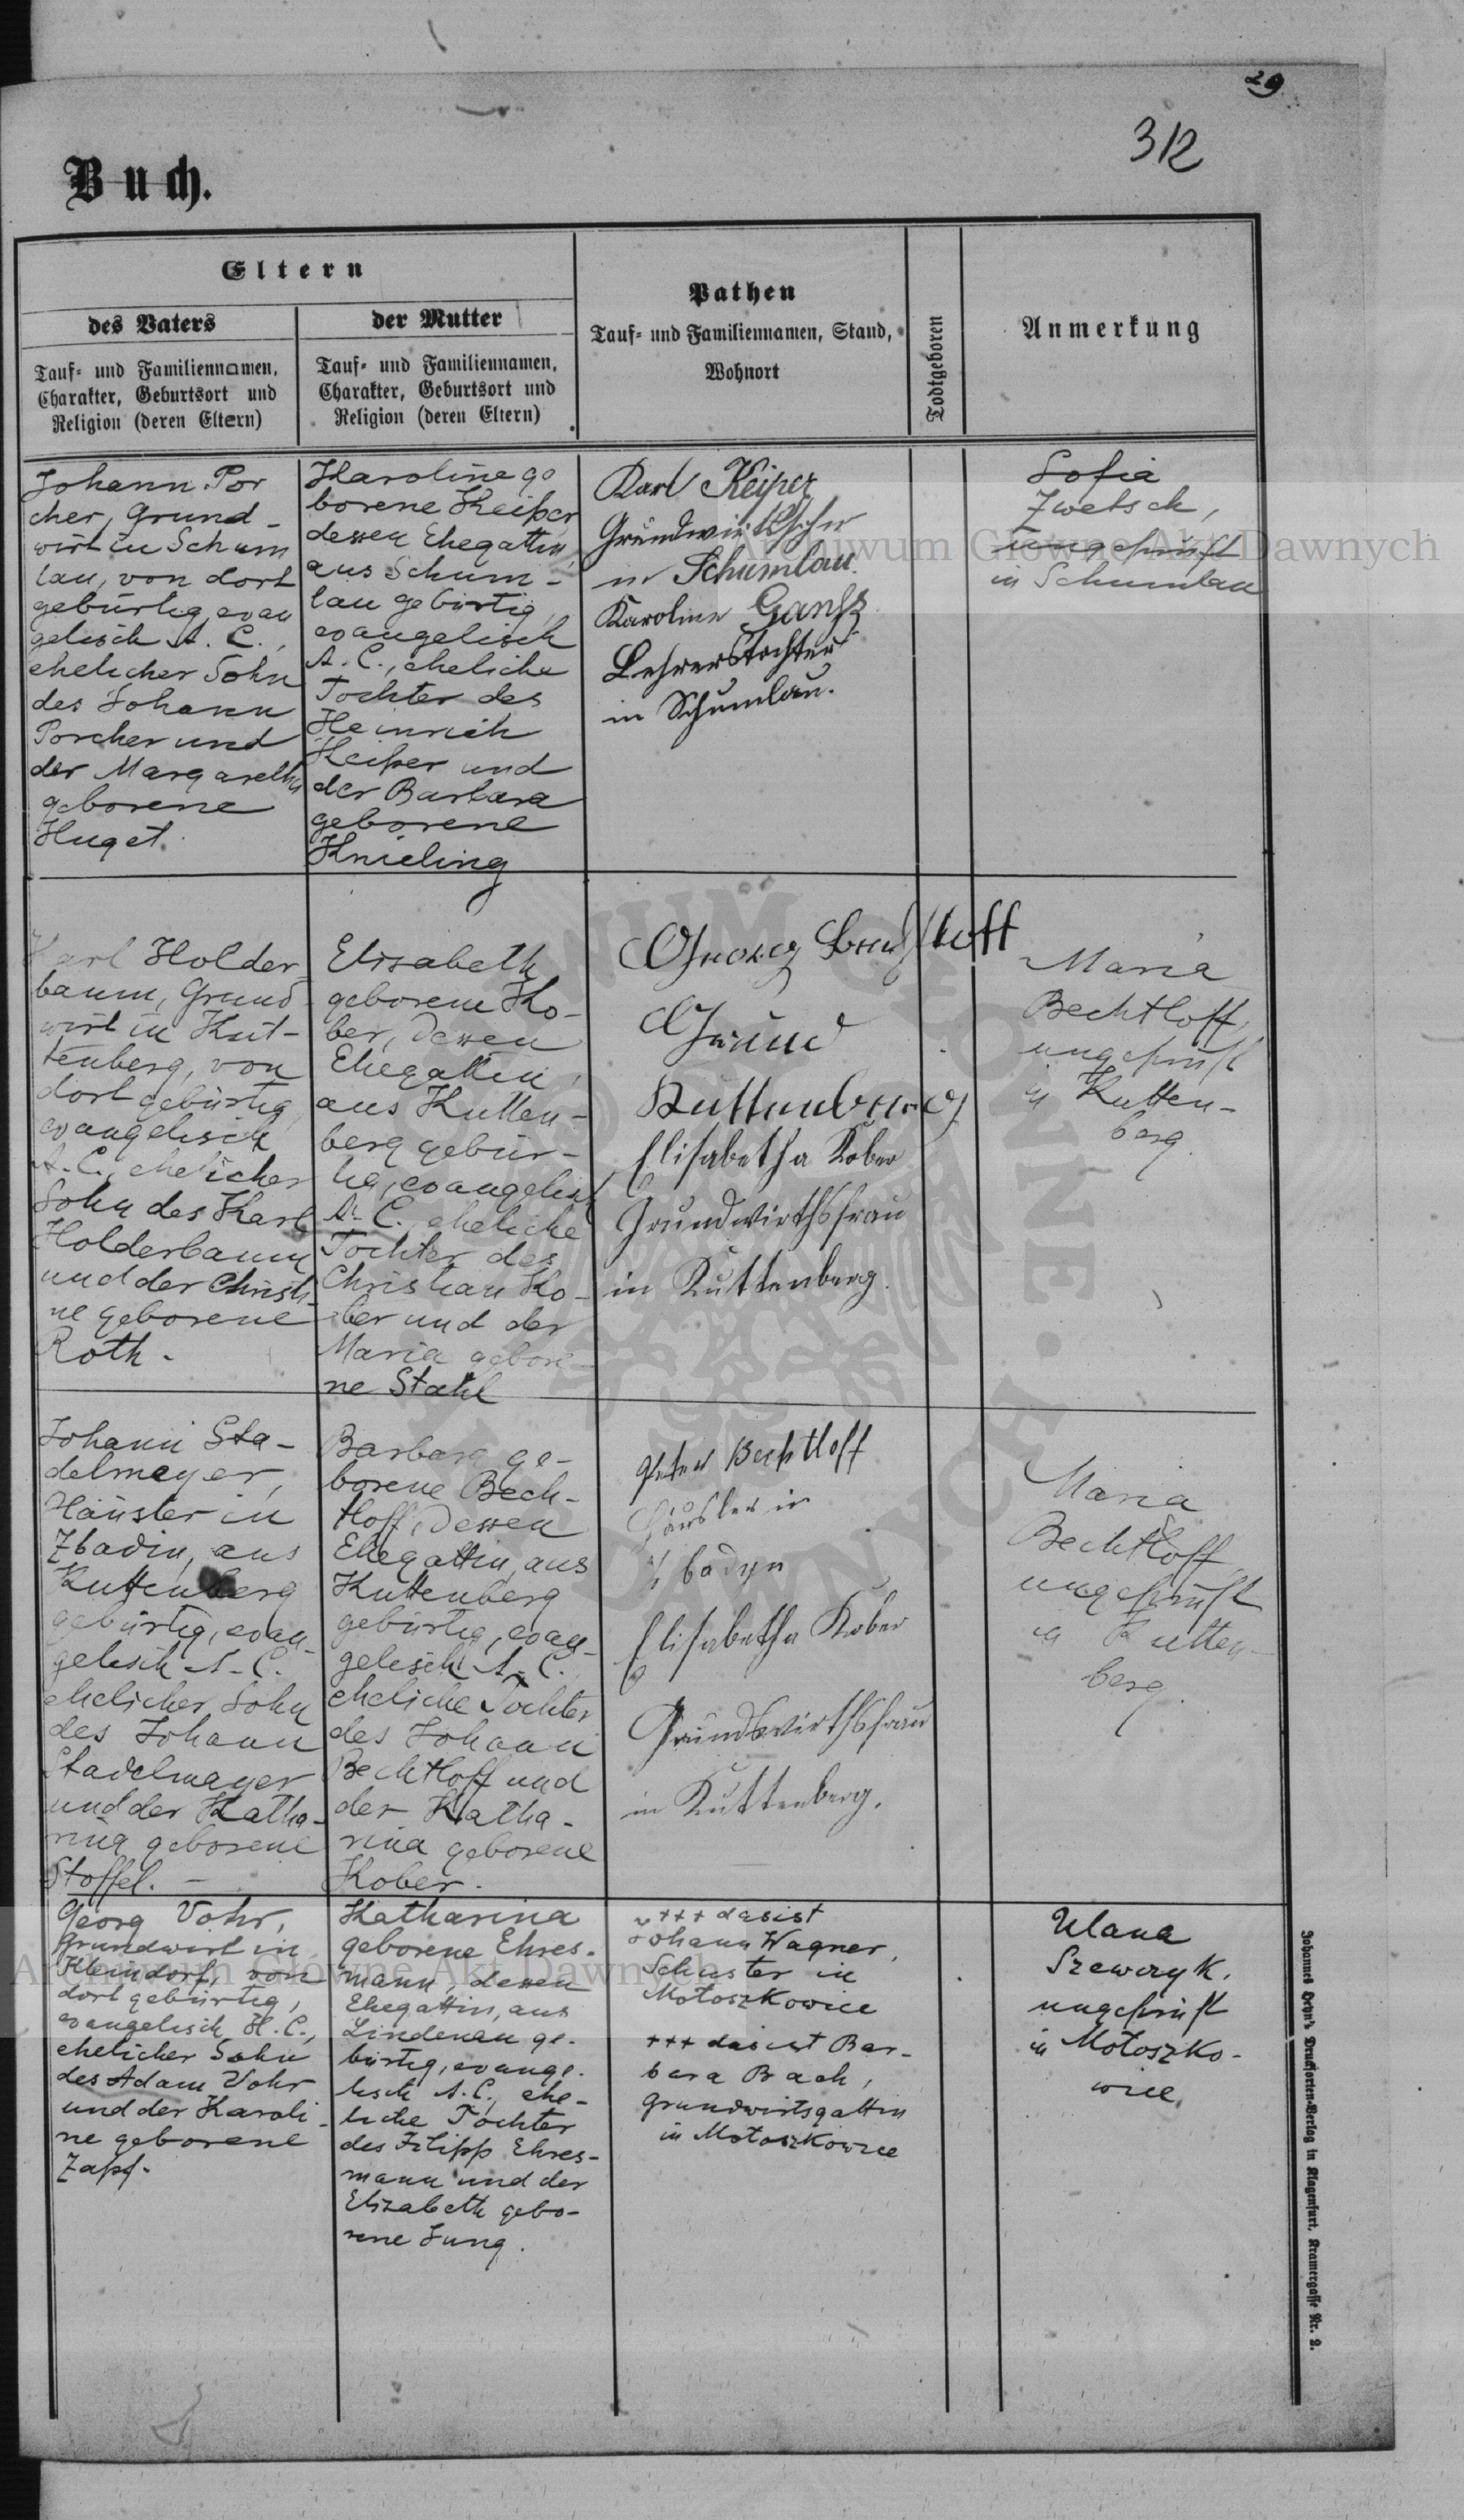 29
312
Buch.
Eltern
des Vaters
Tauf- und Familiennamen,
Charakter, Geburtsort und
Religion (deren Eltern)
der Mutter
Tauf- und Familiennamen,
Charakter, Geburtsort und
Religion (deren Eltern)
Pathen
Tauf- und Familiennamen, Stand,
Wohnort
Todtgeboren
Anmerkung
Johann Por
cher, Grund-
wirt in Schum
lau, von dort
gebürtig, evan
gelisch A. C.,
ehelicher Sohn
des Johann
Porcher und
der Margaretha
geborene
Huget.
Karoline ge
borene Keiper
dessen Ehegattin,
aus Schum-
lau gebürtig,
evangelisch
A. C., eheliche
Tochter des
Heinrich
Keiper und
der Barbara
geborene
Knieling
Karl Keiper
Grundwirtssohn
in Schumlau.
Karoline Gansz
Lehrerstochter
in Schumlau.
Sofia
Zwetsch,
ungeprüft
in Schumlau
Karl Holder
baum, Grund
wirt in Kut-
tenberg, von
dort gebürtig,
evangelisch
A. C., ehelicher
Sohn des Karl
Holderbaum
und der Christi-
ne geborene
Roth.
Elisabeth
geborene Ko-
ber, dessen
Ehegattin,
aus Kutten-
berg gebür-
tig, evangelisch
A. C., eheliche
Tochter des
Christian Ko-
ber und der
Maria gebore-
ne Stahl
Georg
Grund
Kuttenberg
Elisabetha Kober
Grundwirthsfrau
in Kuttenberg.
Maria
Bechtloff,
ungeprüft
in Kutten-
berg.
Johann Sta-
delmeyer,
Häusler in
Zbadin, aus
Kuttenberg
gebürtig, evan-
gelisch A. C.
ehelicher Sohn
des Johann
Stadelmayer
und der Katha-
rina geborene
Stoffel. -
Barbara ge-
borene Bech-
tloff, dessen
Ehegattin, aus
Kuttenberg
gebürtig, evan-
gelisch A. C.
eheliche Tochter
des Johann
Bechtloff und
der Katha-
rina geborene
Kober.
Peter Bechtloff
Häusler in
Zbadyn
Elisabetha Kober
Grundswirthsfrau
in Kuttenberg.
Maria
Bechtloff,
ungeprüft
in Kutten-
berg.
Georg Vohr,
Grundwirt in
Kleindorf, von
dort gebürtig,
evangelisch H. C.,
ehelicher Sohn
des Adam Vohr
und der Karoli-
ne geborene
Zapf.
Katharina
geborene Ehres-
mann, dessen
Ehegattin, aus
Lindenau ge-
bürtig, evange-
lisch A. C., ehe-
liche Tochter
des Filipp Ehres-
mann und der
Elizabeth gebo-
rene Jung.
+++ das ist
Johann Wagner,
Schuster in
Motoszkowice
+++ das ist Bar-
bara Bach,
Grundwirtsgattin
in Motoszkowice
Ulana
Szewczyk,
ungeprüft
in Motoszko-
wice.
Johannes Heyn's Drucksorten-Verlag in Klagenfurt, Kramergasse Nr. 2.
Archiwum Główne Akt Dawnych
Archiwum Główne Akt Dawnych